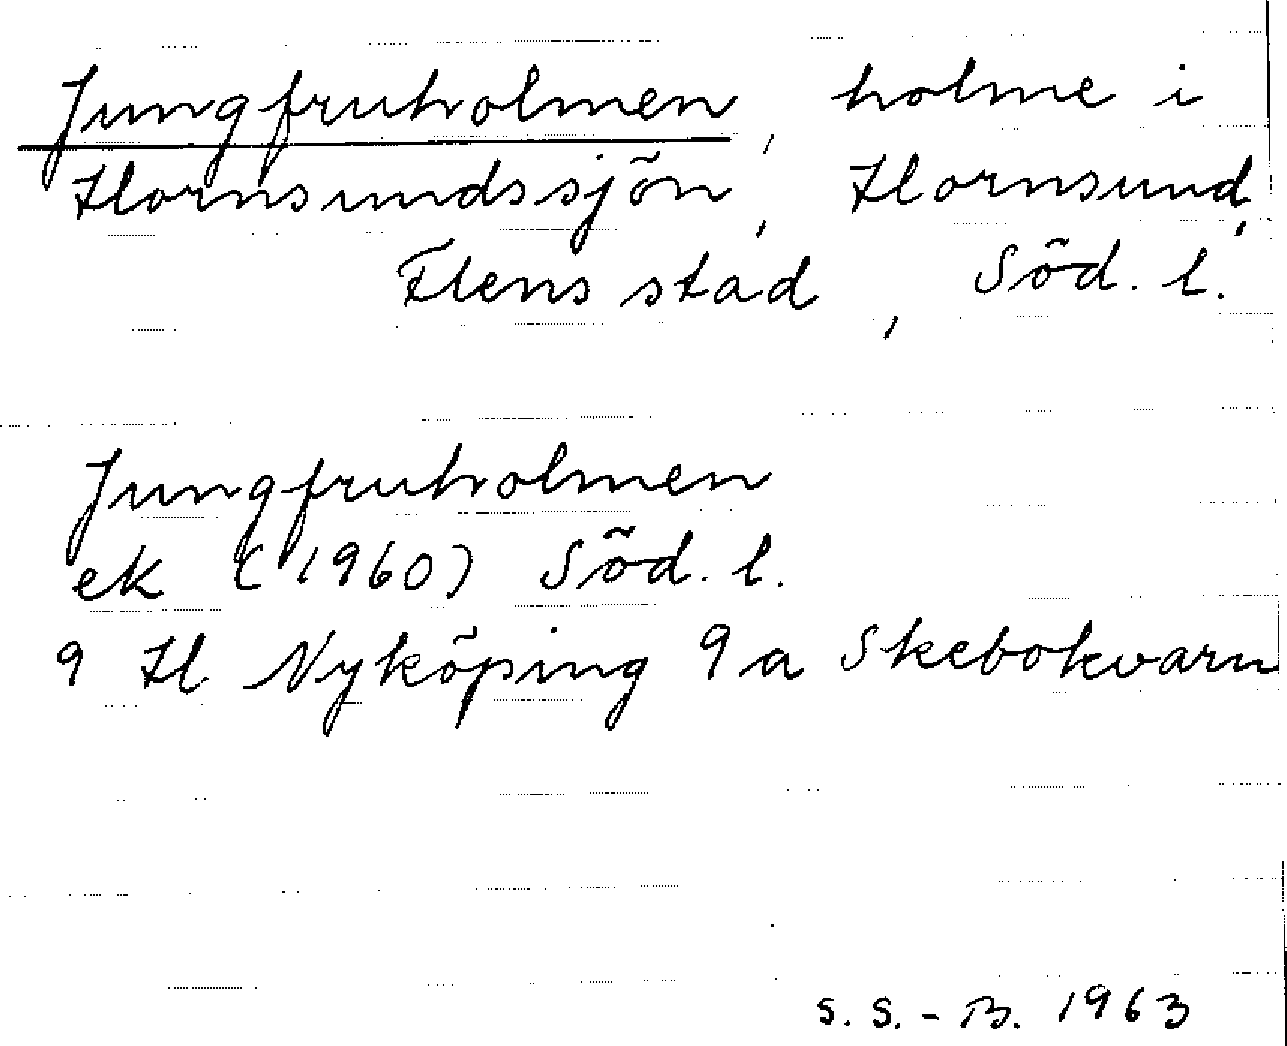 Jungfruholmen, holme i
Hornsundssjön, Hornsund,
Flens stad, Söd. l.
Jungfruholmen
ek (1960) Söd. l.
9 H Nyköping 9a Skebokvarn
S. S.-B. 1963